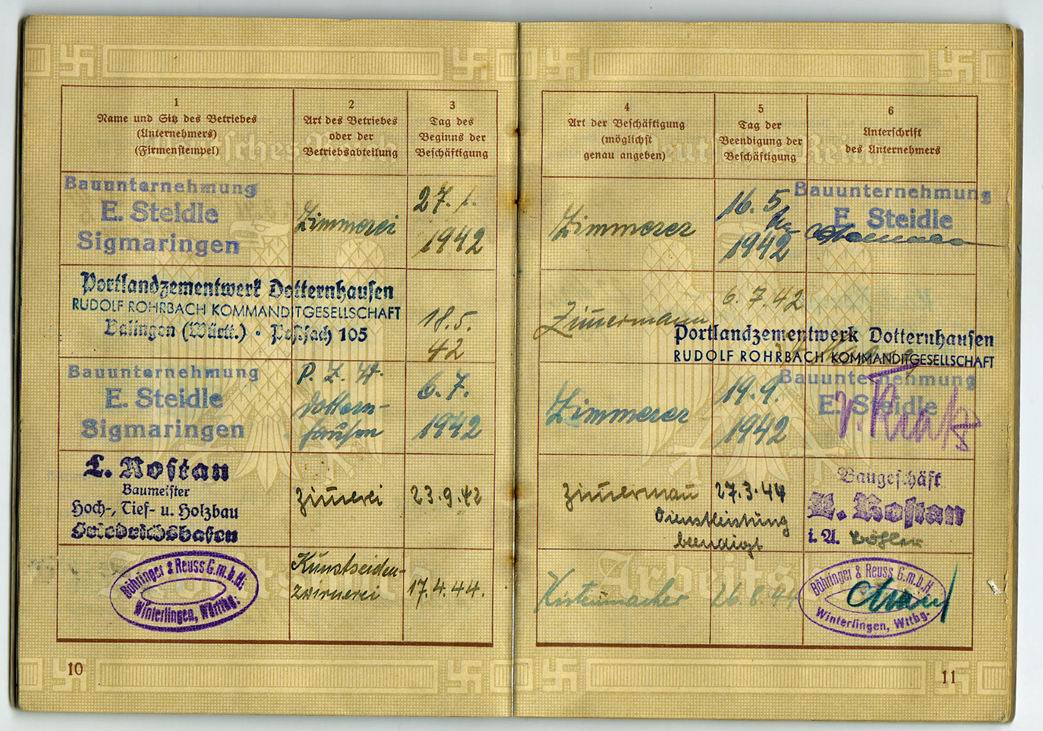 1
Name und Sitz des Betriebes
(Unternehmers)
(Firmenstempel)
2
Art des Betriebes
oder der
Betriebsabteilung
3
Tag des
Beginns der
Beschäftigung
Bauunternehmung
E. Steidle
Sigmaringen
Zimmerei
27. 1.
1942
Portlandzementwerk Dotternhausen
RUDOLF ROHRBACH KOMMANDITGESELLSCHAFT
Balingen (Württ.) • Postfach 105
18.5.
42
Bauunternehmung
E. Steidle
Sigmaringen
P. Z. W.
Dottern-
hausen
6.7.
1942
L. Rostan
Baumeister
Hoch-, Tief- u. Holzbau
Friedrichshafen
Zimerei
23.9.42
Böhringer & Reuss G.m.b.H.
Winterlingen, Württbg.
Kunstseiden-
zwirnerei
17.4.44.
10
4
Art der Beschäftigung
(möglichst
genau angeben)
5
Tag der
Beendigung der
Beschäftigung
6
Unterschrift
des Unternehmers
Zimmerer
16.5
1942
Bauunternehmung
E. Steidle
Zimermann
6.7.42
Portlandzementwerk Dotternhausen
RUDOLF ROHRBACH KOMMANDITGESELLSCHAFT
Zimmerer
19.9.
1942
Bauunternehmung
E. Steidle
Zimerman
27.3.44
Dienstleistung
beendigt
Baugeschäft
L. Rostan
i. A.
Kistenmacher
26.8.44
Böhringer & Reuss G.m.b.H.
Winterlingen, Wttbg.
11